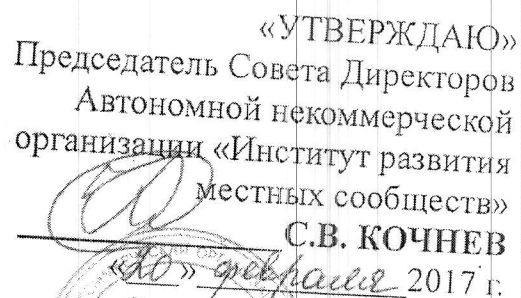 «УТВЕРЖДАЮ»
Председатель Совета Директоров
Автономной некоммерческой
организации «Институт развития
местных сообществ»
С.В. КОЧНЕВ
«20» февраля 2017 г.